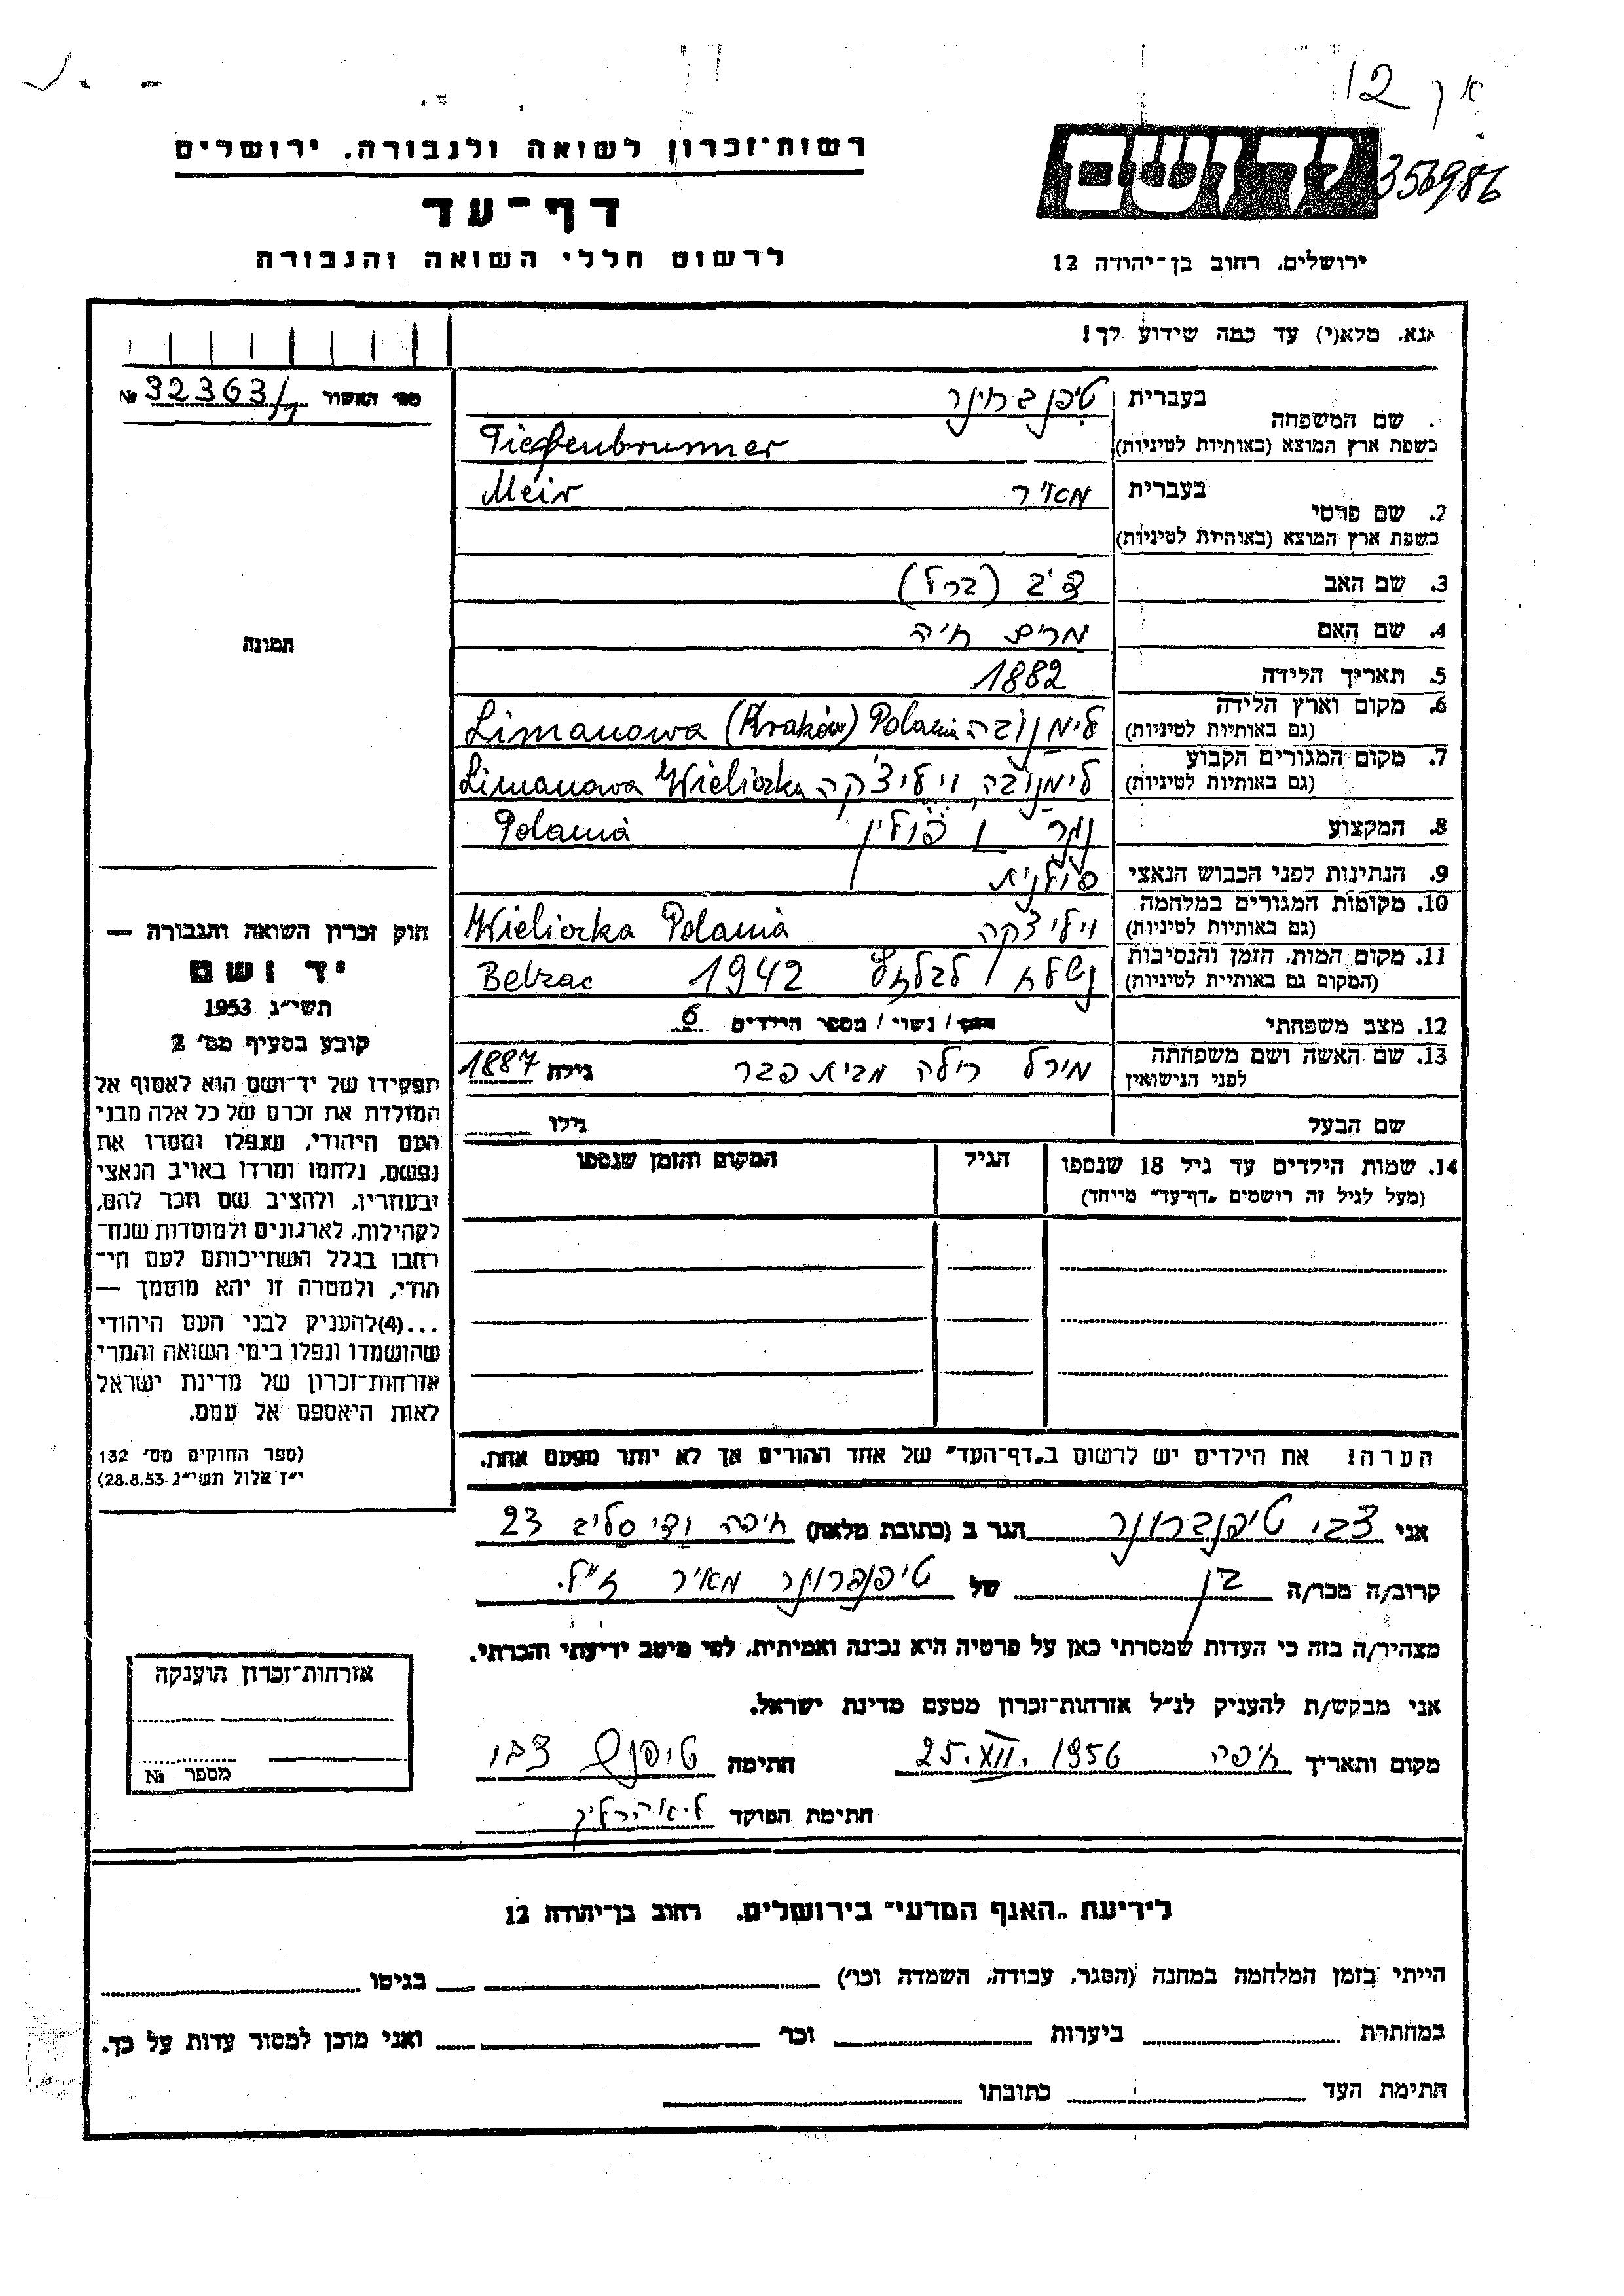 א ך 12
356986
יד ושם
ירושלים, רחוב בן־יהודה 12
רשות־זכרון לשואה ולגבורה, ירושלים
דף־עד
לרשום חללי השואה והגבורה
נא, מלא(י) עד כמה שידוע לך!
מס׳ האשור 32363/1 №
תמונה
שם המשפחה
בעברית טיפנברונר
בשפת ארץ המוצא (באותיות לטיניות) Tiefenbrunner
2. שם פרטי
בעברית מאיר Meir
בשפת ארץ המוצא (באותיות לטיניות)
3. שם האב (ברל)
4. שם האם מרים חיה
5. תאריך הלידה 1882
6. מקום וארץ הלידה (גם באותיות לטיניות) לימנובה Limanowa (Kraków) Polania
7. מקום המגורים הקבוע (גם באותיות לטיניות) לימנובה, ויליצ'קה Limanowa Wieliczka
8. המקצוע פולין Polania
9. הנתינות לפני הכבוש הנאצי פולנית
10. מקומות המגורים במלחמה (גם באותיות לטיניות) ויליצקה Wieliczka Polania
11. מקום המות, הזמן והנסיבות (המקום גם באותיית לטיניות) נשלח לבלזץ 1942 Belzac
12. מצב משפחתי רווק / נשוי / מספר הילדים 6
13. שם האשה ושם משפחתה לפני הנישואין מירל רילה מבית פבר גילה 1887
שם הבעל גילו
14. שמות הילדים עד גיל 18 שנספו (מעל לגיל זה רושמים „דף־עד״ מייחד) הגיל המקום והזמן שנספו
הערה! את הילדים יש לרשום ב„דף־העד״ של אחד ההורים אך לא יותר מפעם אחת.
חוק זכרון השואה והגבורה —
יד ושם
תשי״ג 1953
קובע בסעיף מס׳ 2
תפקידו של יד־ושם הוא לאסוף אל
המולדת את זכרם של כל אלה מבני
העם היהודי, שנפלו ומסרו את
נפשם, נלחמו ומרדו באויב הנאצי
ובעוזריו, ולהציב שם וזכר להם,
לקהילות, לארגונים ולמוסדות שנח־
רבו בגלל השתייכותם לעם הי־
הודי, ולמטרה זו יהא מוסמך —
...(4) להעניק לבני העם היהודי
שהושמדו ונפלו בימי השואה והמרי
אזרחות־זכרון של מדינת ישראל
לאות היאספם אל עמם.
(ספר החוקים מס׳ 132
י״ז אלול תשי״ג 28.8.53)
אני צבי טיפנברונר הגר ב (כתובת מלאה) חיפה ואדי סליב 23
קרוב/ה מכר/ה בן של טיפנברונר מאיר ז״ל.
מצהיר/ה בזה כי העדות שמסרתי כאן על פרטיה היא נכונה ואמיתית, לפי מיטב ידיעתי והכרתי.
אני מבקש/ת להעניק לנ״ל אזרחות־זכרון מטעם מדינת ישראל.
מקום ותאריך חיפה 25.XII.1956 חתימה צבי
חתימת הפוקד
אזרחות־זכרון הוענקה
מספר №
לידיעת „האגף המדעי״ בירושלים, רחוב בן־יהודה 12
הייתי בזמן המלחמה במחנה (הסגר, עבודה, השמדה וכו׳) בגיטו
במחתרת ביערות וכו׳ ואני מוכן למסור עדות על כך.
חתימת העד כתובתו